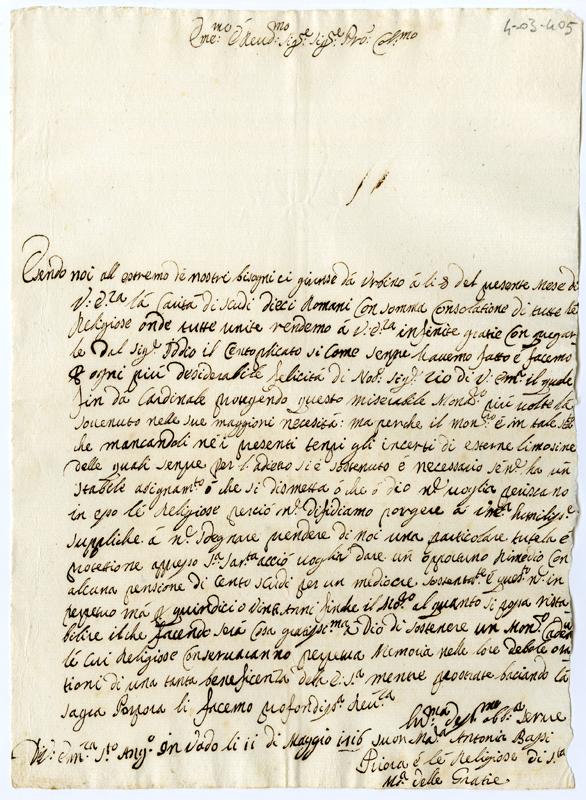 4-03-405
E.mo e Reud.mo Sig.re Sig.re Pro.n Col.mo
Esendo noi all estremo de nostri bisogni ci giunse da Urbino á li 8 del presente Mese di
V: E.za la Carita di scudi dieci Romani con somma consolatione di tutte le
Religiose onde tutte unite rendemo á V: E.za infinite gratie con pregar
le dal Sig.re Iddio il Centoplicato si come sempre havemo fatto é facemo
ogni piu desiderabile felicita di Nos: Sig.re Zio di V: Em.za il quale
fin da Cardinale provgendo questo miserabile Mona.o piu volte l'a
sovenuto nelle sue maggioni necesità: ma perche il mon.ro é in tale
che mancandoli ne i presenti tempi gli incerti di esterne limosine
delle quali sempre per l'adietro si é sostenuto é necessario se non ha un
stabile asignam.to ó che si dismetta ó che ó dio non voglia periscano
in epso le Religiose perció non difidiamo porgere á humiliss.e
suppliche á non sdegnare prendere di noi una particolare tutela é
protetione appresso S.ta acció voglia dare un opportuno rimedio con
alcuna pensione di Cento scudi per un mediocre sostenta.to é non in
perpetuo má p quindici o vinti Anni finche il alquanto si possa rista
bilire il che facendo será cosa gratiss.ma á Dio di sostenere un Mon.o
le cui Religiose conserveranno perpetua Memoria nelle loro debole ora
tioni di una tanta beneficenza mentre prostrate baciando la
sagra Porpora li facemo profondiss.a Reu.za
Di V: Em.za S.to Ang.o In Vado li 11 di Maggio 1716
hu.ma dev.ma obb.a serve
Suor Ma.a Antonia Bassi
Priora é le Religiose di S.ta
M.a delle Gratie